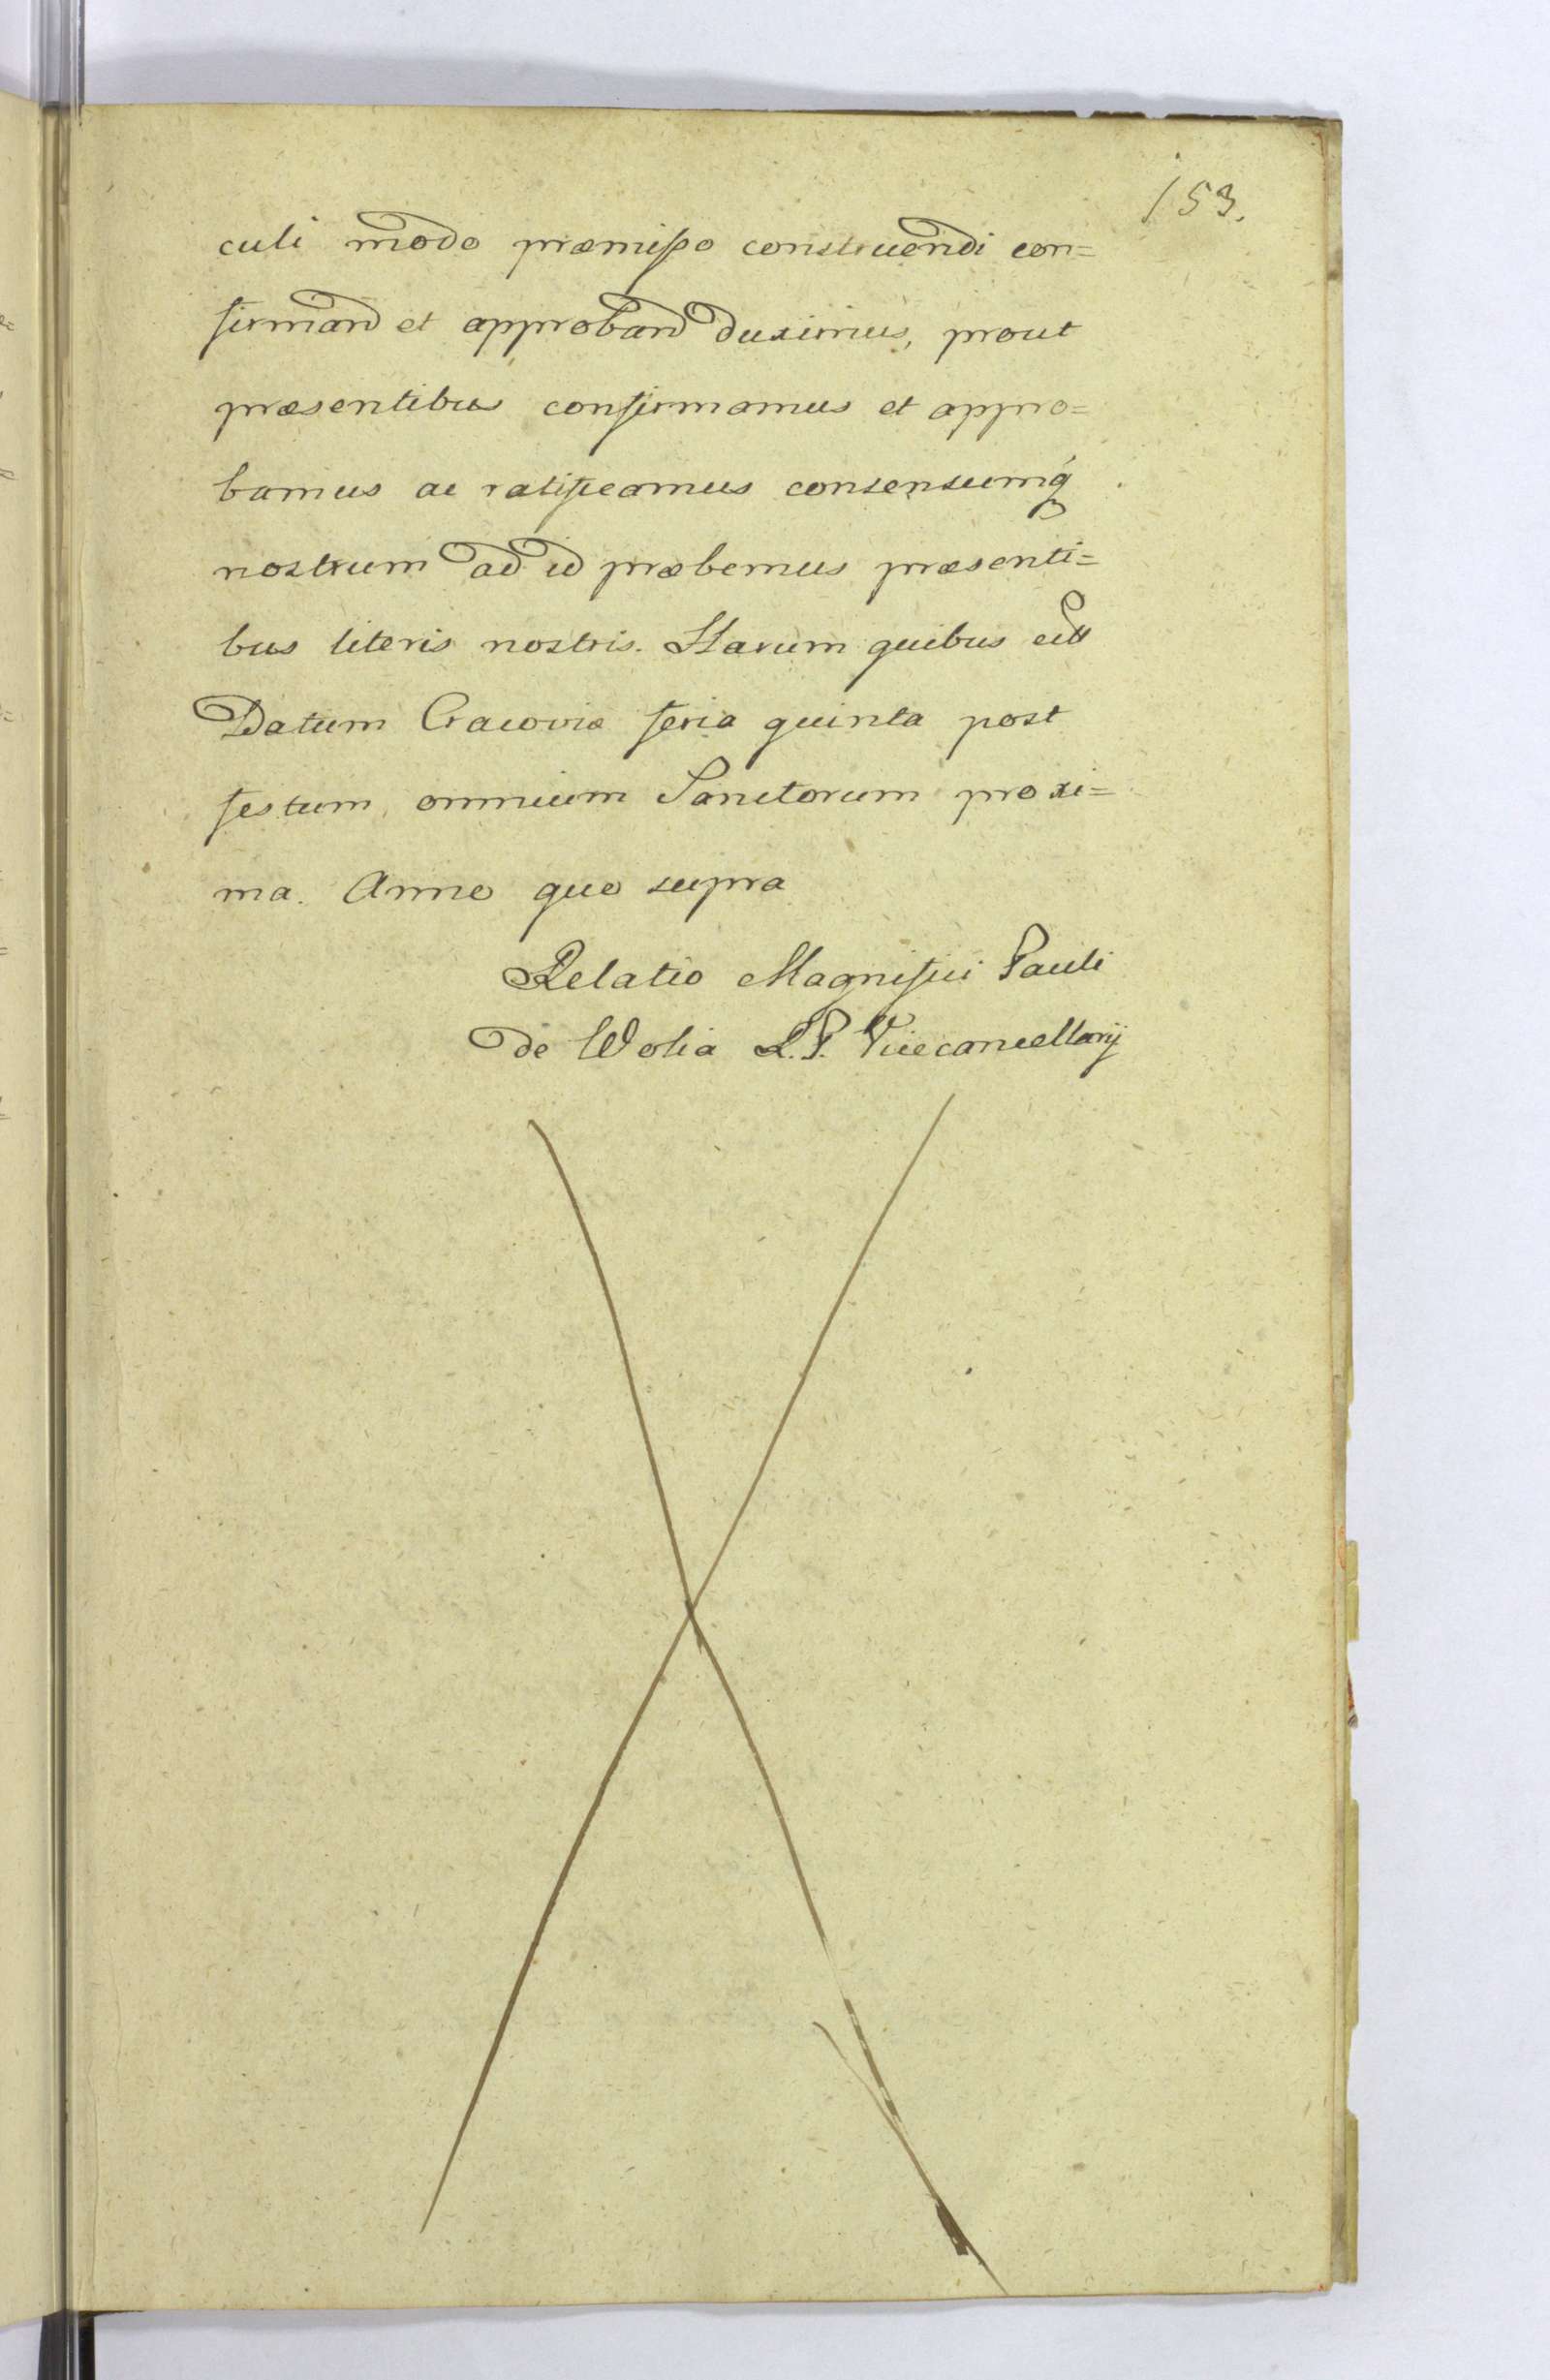 153.
culi modo præmisso construendi con=
firmand et approband duximus, prout
præsentibus confirmamus et appro=
bamus ac ratificamus consensumq́
nostrum ad id præbemus præsenti=
bus literis nostris. Harum quibus
Datum Cracoviæ feria quinta post
festum omnium Sanctorum proxi=
ma. Anno quo supra
Relatio Magnifici Pauli
de Wolia R. P. Vicecancellarij